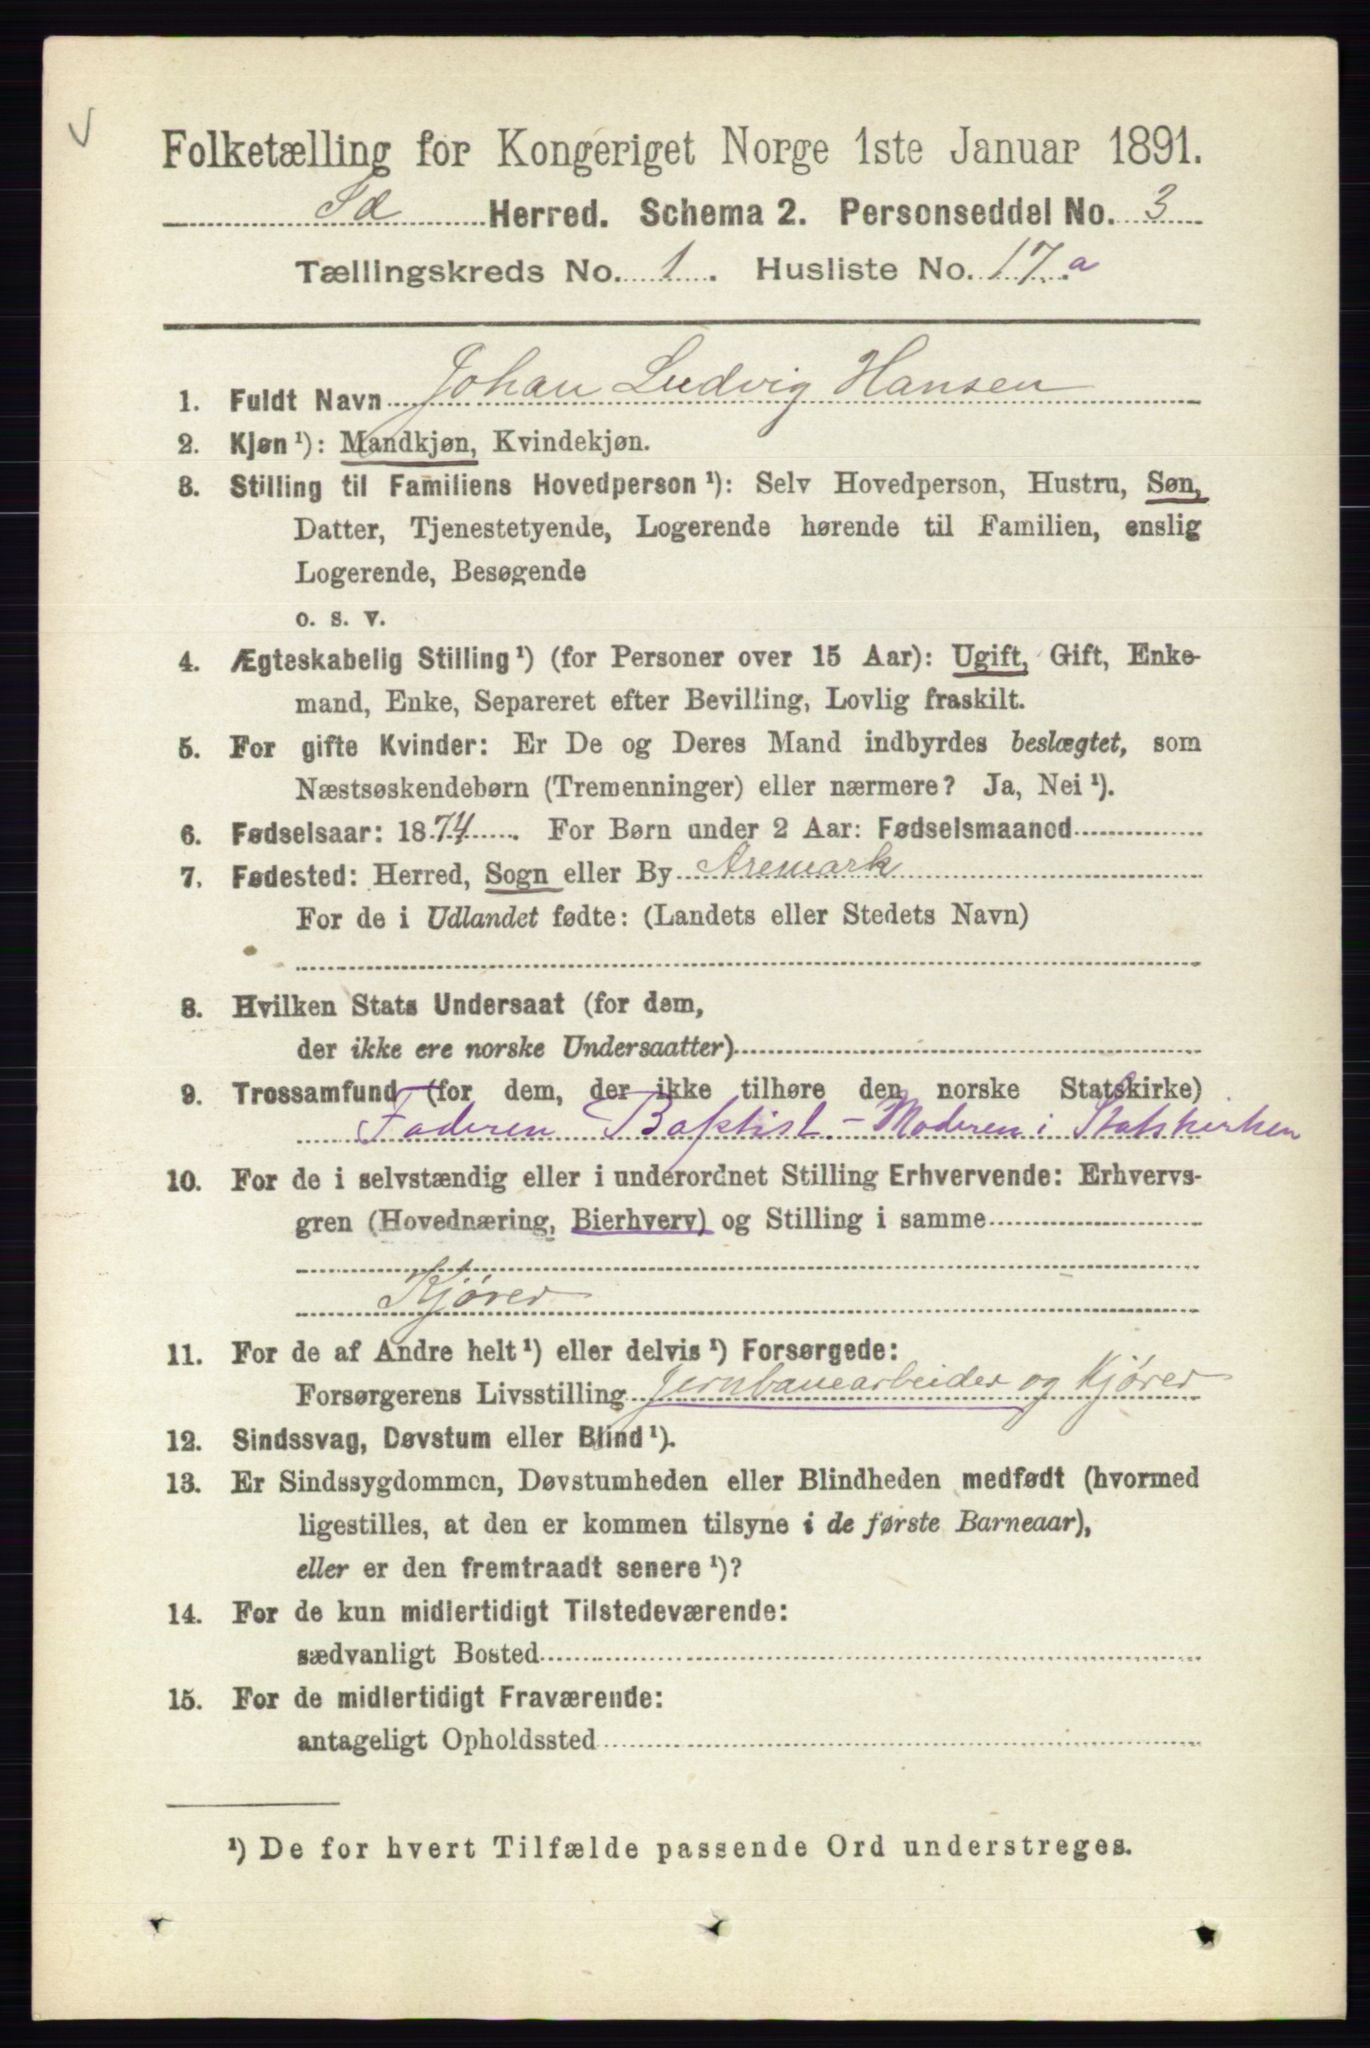 Folketælling for Kongeriget Norge 1ste Januar 1891.
Id Herred. Schema 2. Personseddel No. 3
Tællingskreds No. 1. Husliste No. 17.a
1. Fuldt Navn Johan Ludvig Hansen
2. Kjøn ¹): Mandkjøn, Kvindekjøn.
3. Stilling til Familiens Hovedperson ¹): Selv Hovedperson, Hustru, Søn,
Datter, Tjenestetyende, Logerende hørende til Familien, enslig
Logerende, Besøgende
o. s. v.
4. Ægteskabelig Stilling ¹) (for Personer over 15 Aar): Ugift, Gift, Enke-
mand, Enke, Separeret efter Bevilling, Lovlig fraskilt.
5. For gifte Kvinder: Er De og Deres Mand indbyrdes beslægtet, som
Næstsøskendebørn (Tremenninger) eller nærmere? Ja, Nei ¹).
6. Fødselsaar: 1874. For Børn under 2 Aar: Fødselsmaaned
7. Fødested: Herred, Sogn eller By Aremark
For de i Udlandet fødte: (Landets eller Stedets Navn)
8. Hvilken Stats Undersaat (for dem,
der ikke ere norske Undersaatter)
9. Trossamfund (for dem, der ikke tilhøre den norske Statskirke)
Faderen Baptist. - Moderen i Statskirken
10. For de i selvstændig eller i underordnet Stilling Erhvervende: Erhvervs-
gren (Hovednæring, Bierhverv) og Stilling i samme
Kjører
11. For de af Andre helt ¹) eller delvis ¹) Forsørgede:
Forsørgerens Livsstilling Jernbanearbeider og Kjører
12. Sindssvag, Døvstum eller Blind ¹).
13. Er Sindssygdommen, Døvstumheden eller Blindheden medfødt (hvormed
ligestilles, at den er kommen tilsyne i de første Barneaar),
eller er den fremtraadt senere ¹)?
14. For de kun midlertidigt Tilstedeværende:
sædvanligt Bosted
15. For de midlertidigt Fraværende:
antageligt Opholdssted
¹) De for hvert Tilfælde passende Ord understreges.